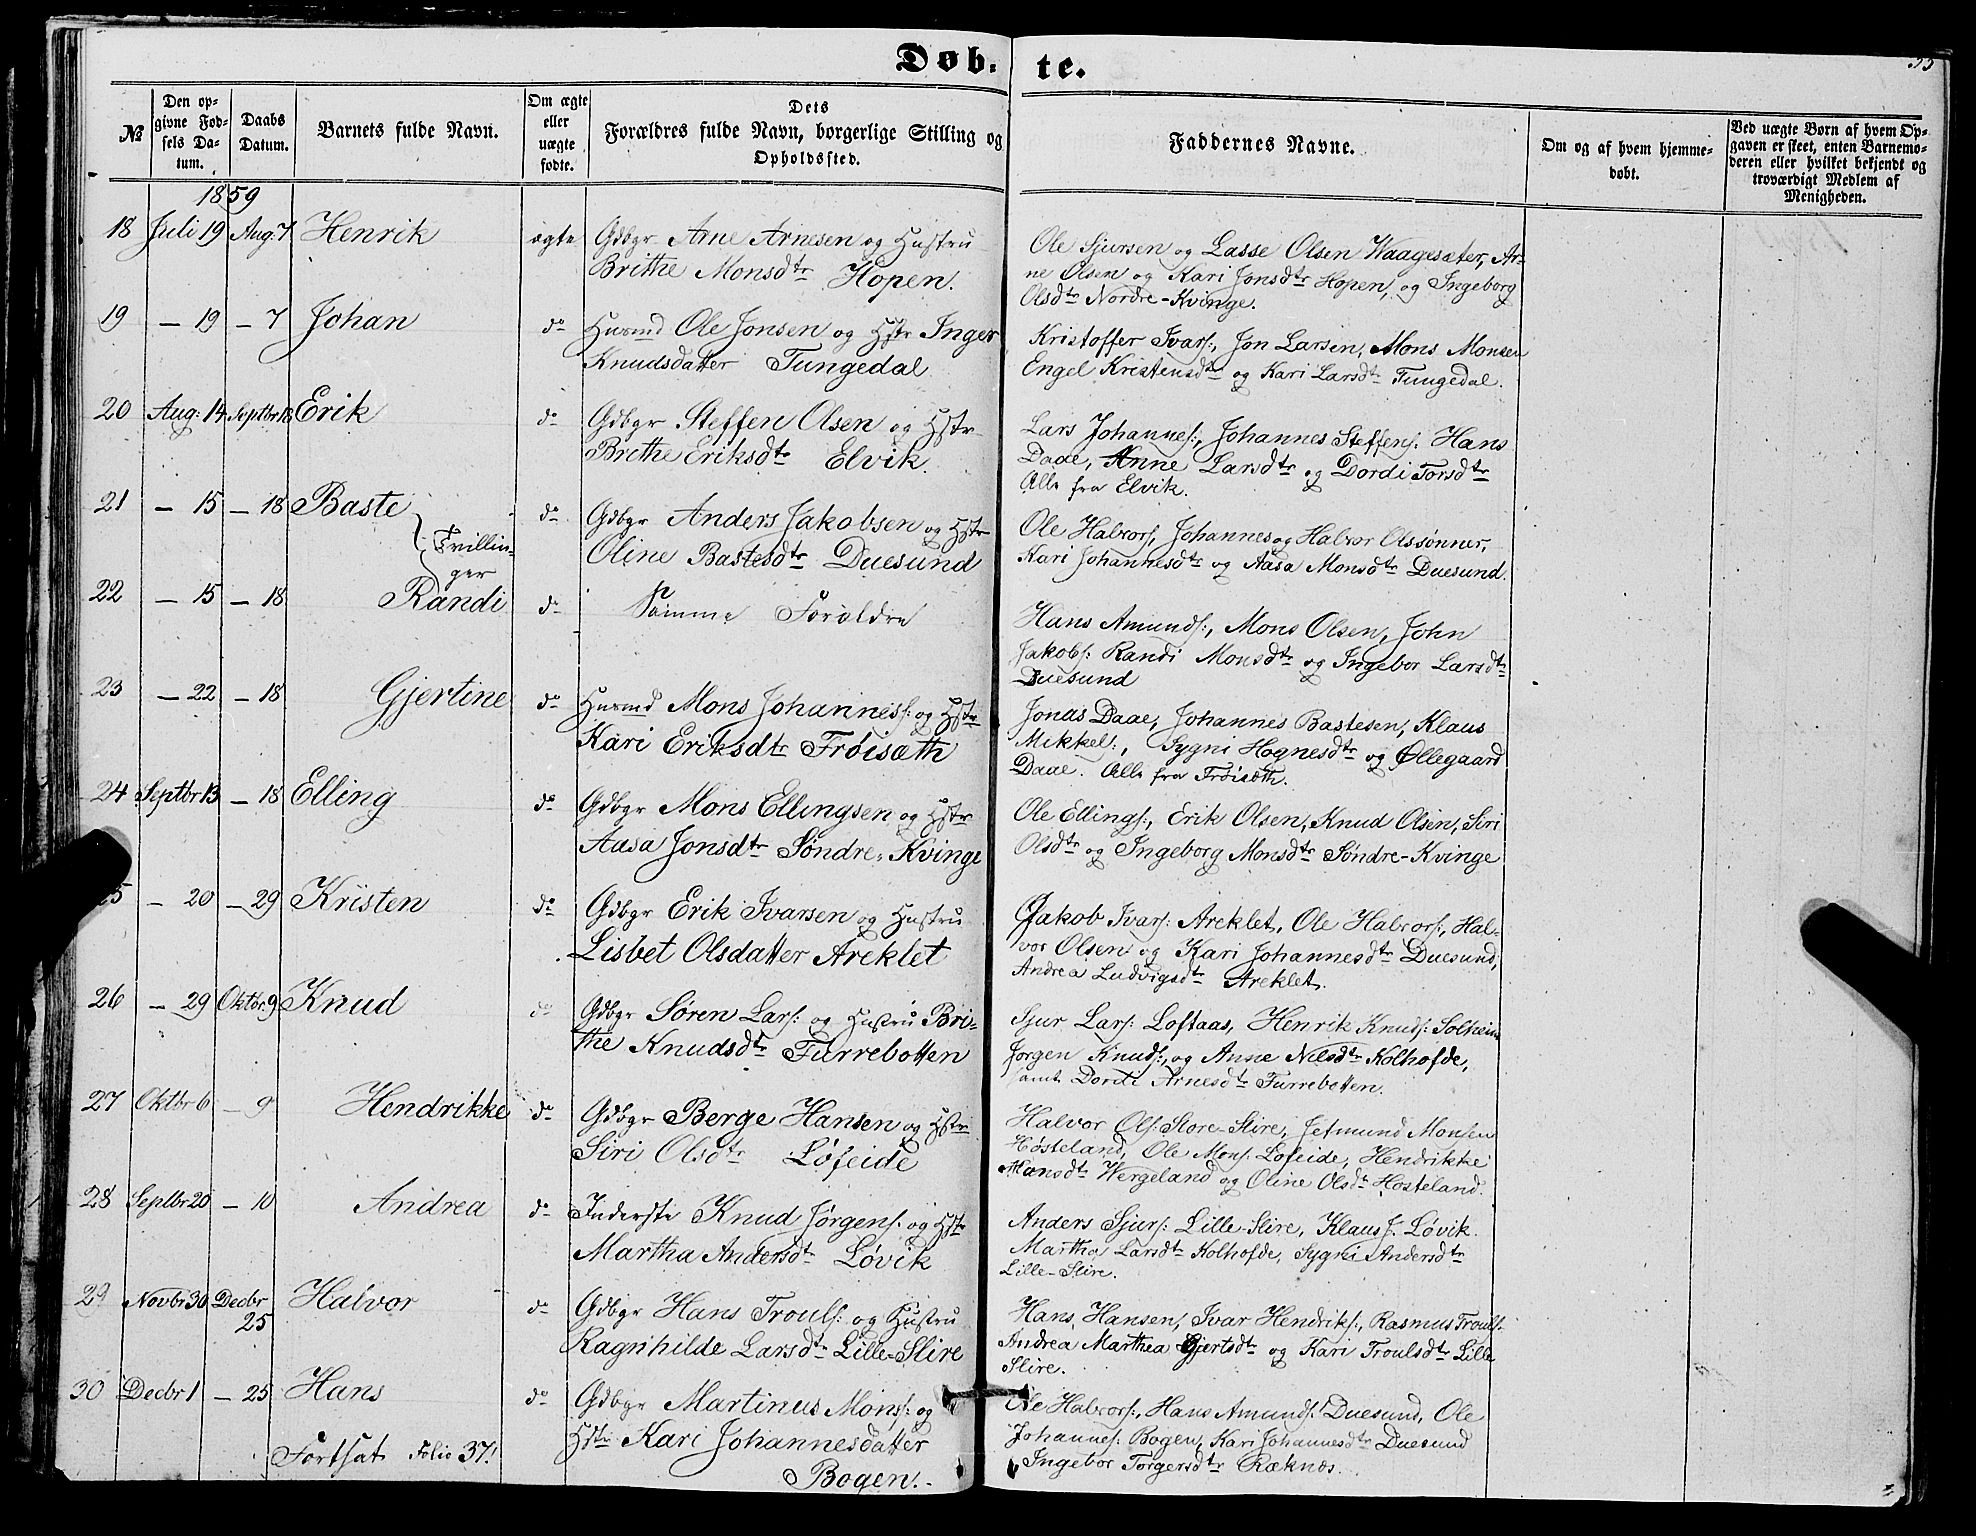 Døb-
te.
35
№
Den op-
givne Fød-
sels Da-
tum.
Daabs
Datum.
Barnets fulde Navn.
Om ægte
eller
uægte
fødte.
Dets
Forældres fulde Navn, borgerlige Stilling og
Opholdssted.
Faddernes Navne.
Om og af hvem hjemme-
døbt.
Ved uægte Børn af hvem Op-
gaven er skeet, enten Barnemo-
deren eller hvilket bekjendt og
troværdigt Medlem af
Menigheden.
1859
18 Juli 19 Aug: 7 Henrik ægte Gdbgr Arne Arnesen og Hustru
Brithe Monsdtr Hopen.
Ole Sjursen og Lasse Olsen Waagesæter, Ar-
ne Olsen og Kari Jonsdtr Hopen, og Ingeborg
Olsdtr Nordre-Kvinge.
19 — 19 — 7 Johan do Husmd Ole Jonsen og Hstr Inger
Knudsdatter Tungedal
Kristoffer Ivars:, Jon Larsen, Mons Monsen
Engel Kristensdtr og Kari Larsdtr Tungedal.
20 Aug: 14 Septbr 18 Erik do Gdbgr Steffen Olsen og Hstr
Brithe Eriksdtr Elvik.
Lars Johannes:, Johannes Steffens: Hans
Daae, Anne Larsdtr og Dordi Torsdtr
Alle fra Elvik.
21 — 15 — 18 Baste do Gdbgr Anders Jakobsen og Hstr
Tvillin-
ger
Oline Bastesdtr Duesund
Ole Halvors, Johannes og Halvor Olssønner,
Kari Johannesdtr og Aasa Monsdtr Duesund.
22 — 15 — 18 Randi do Samme Forældre
Hans Amunds:, Mons Olsen, John
Jakobs: Randi Monsdtr og Ingebor Larsdtr
Duesund
23 — 22 — 18 Gjertine do Husmd Mons Johanness: og Hstr
Kari Eriksdtr Frøisæth
Jonas Daae, Johannes Bastesen, Klaus
Mikkels:, Sygni Hognesdtr og Øllegaard
Daae. Alle fra Frøisæth.
24 Septbr 13 — 18 Elling do Gdbgr Mons Ellingsen og Hstr
Aasa Jonsdtr Søndre-Kvinge
Ole Ellings:, Erik Olsen, Knud Olsen, Siri
Olsdtr og Ingeborg Monsdtr Søndre-Kvinge
25 — 20 — 29 Kristen do Gdbgr Erik Ivarsen og Hustru
Lisbet Olsdatter Areklet
Jakob Ivars: Areklet, Ole Halvors:, Hal-
vor Olsen og Kari Johannesdtr Duesund,
Andrea Ludvigsdtr Areklet.
26 — 29 Oktbr: 9 Knud do Gdbgr Søren Lars: og Hustru Bri-
the Knudsdtr Furrebotten
Sjur Lars: Loftaas, Henrik Knuds: Solheim
Jørgen Knuds:, og Anne Nilsdtr Kolhofde,
samt Dordi Arnesdtr Furrebotten.
27 Oktbr 6 — 9 Hendrikke do Gdbgr Berge Hansen og Hstr
Siri Olsdtr Løfeide
Halvor Ols: Store-Slire, Jetmund Monsen
Høsteland, Ole Mons: Lofeide, Hendrikke
Mansdtr Wergeland og Oline Olsdtr Hosteland.
28 Septbr 20 — 10 Andrea do Inderste Knud Jørgens: og Hstr
Martha Andersdtr Løvik
Anders Sjurs: Lille-Slire, Klaus J. Løvik.
Martha Larsdtr Kolhofde, Sygni Andersdtr
Lille-Slire.
29 Novbr 30 Decbr
25 Halvor do Gdbgr Hans Trouls: og Hustru
Ragnhilde Larsdtr Lille-Slire
Hans Hansen, Ivar Hendriks:, Rasmus Trouls-
Andrea Marthea Gjertsdtr og Kari Troulsdtr Lille
Slire.
30 Decbr 1 — 25 Hans do Gdbgr Martinus Mons: og
Hstr Kari Johannesdatter
Bogen.-
Ole Halvors:, Hans Amunds: Duesund, Ole
Johannes: Bogen, Kari Johannesdtr Duesund
Ingebor Torgersdtr Ræknæs.
Fortsat Folio 37!